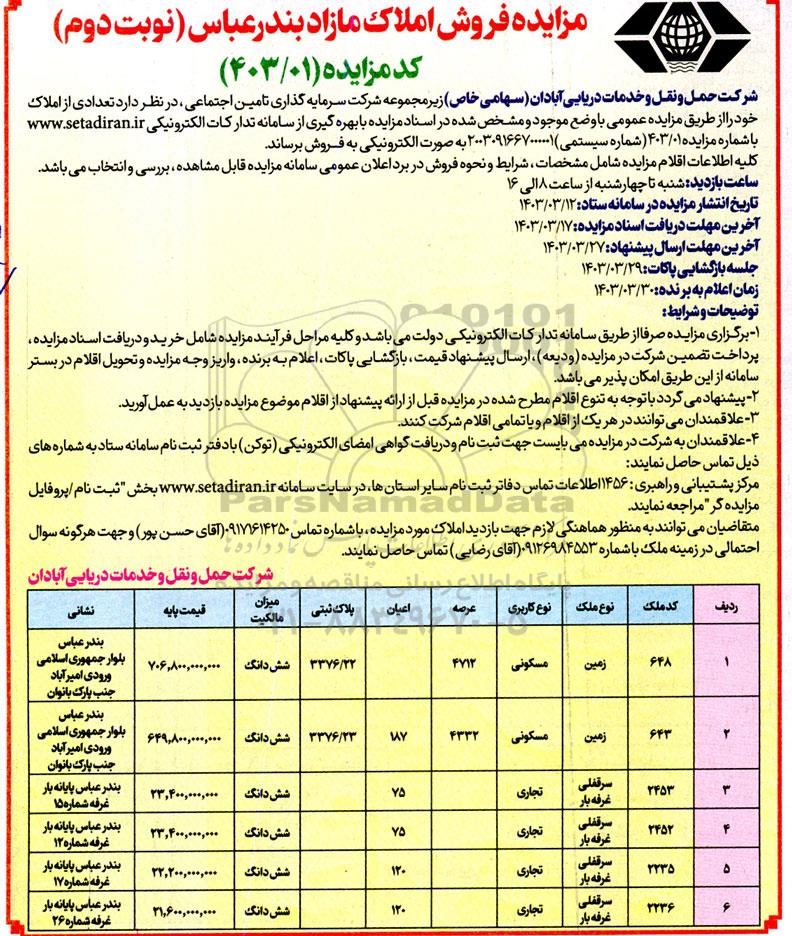 مزایده فروش املاک مازاد بندرعباس (نوبت دوم)
کد مزایده (۴۰۳/۰۱)
شرکت حمل و نقل و خدمات دریایی آبادان (سهامی خاص) زیرمجموعه شرکت سرمایه گذاری تامین اجتماعی، در نظر دارد تعدادی از املاک
خود را از طریق مزایده عمومی با وضع موجود و مشخص شده در اسناد مزایده با بهره گیری از سامانه تدارکات الکترونیکی www.setadiran.ir
با شماره مزایده ۴۰۳/۰۱ (شماره سیستمی) ۲۰۰۳۰۹۱۶۶۷۰۰۰۰۰۱ به صورت الکترونیکی به فروش برساند.
کلیه اطلاعات اقلام مزایده شامل مشخصات، شرایط و نحوه فروش در برد اعلان عمومی سامانه مزایده قابل مشاهده، بررسی و انتخاب می باشد.
ساعت بازدید: شنبه تا چهارشنبه از ساعت ۸ الی ۱۶
تاریخ انتشار مزایده در سامانه ستاد: ۱۴۰۳/۰۳/۱۲
آخرین مهلت دریافت اسناد مزایده: ۱۴۰۳/۰۳/۱۷
آخرین مهلت ارسال پیشنهاد: ۱۴۰۳/۰۳/۲۷
جلسه بازگشایی پاکات: ۱۴۰۳/۰۳/۲۹
زمان اعلام به برنده: ۱۴۰۳/۰۳/۳۰
توضیحات و شرایط:
۱-برگزاری مزایده صرفا از طریق سامانه تدارکات الکترونیکی دولت می باشد و کلیه مراحل فرآیند مزایده شامل خرید و دریافت اسناد مزایده،
پرداخت تضمین شرکت در مزایده (ودیعه)، ارسال پیشنهاد قیمت، بازگشایی پاکات، اعلام به برنده، واریز وجه مزایده و تحویل اقلام در بستر
سامانه از این طریق امکان پذیر می باشد.
۲-پیشنهاد می گردد با توجه به تنوع اقلام مطرح شده در مزایده قبل از ارائه پیشنهاد از اقلام موضوع مزایده بازدید به عمل آورید.
۳-علاقمندان می توانند در هر یک از اقلام و یا تمامی اقلام شرکت کنند.
۴-علاقمندان به شرکت در مزایده می بایست جهت ثبت نام و دریافت گواهی امضای الکترونیکی (توکن) با دفتر ثبت نام سامانه ستاد به شماره های
ذیل تماس حاصل نمایند:
مرکز پشتیبانی و راهبری: ۱۴۵۶ اطلاعات تماس دفاتر ثبت نام سایر استان ها، در سایت سامانه www.setadiran.ir بخش "ثبت نام/پروفایل
مزایده گر" مراجعه نمایند.
متقاضیان می توانند به منظور هماهنگی لازم جهت بازدید املاک مورد مزایده، با شماره تماس ۰۹۱۷۱۶۱۴۲۵۰ (آقای حسن پور) و جهت هرگونه سوال
احتمالی در زمینه ملک با شماره ۰۹۱۲۶۹۸۴۵۵۳ (آقای رضایی) تماس حاصل نمایند.
ParsNamadData
شرکت حمل و نقل و خدمات دریایی آبادان
پایگاه اطلاع رسانی مناقصه و مزایده
۰۲۱-۸۸۳۴۹۶۷۰-۵
ردیف کد ملک نوع ملک نوع کاربری عرصه اعیان پلاک ثبتی میزان مالکیت قیمت پایه نشانی
۱ ۶۴۸ زمین مسکونی ۴۷۱۲ ۳۳۷۶/۲۲ شش دانگ ۷۰۶,۸۰۰,۰۰۰,۰۰۰ بندر عباس
بلوار جمهوری اسلامی
ورودی امیرآباد
جنب پارک بانوان
۲ ۶۴۳ زمین مسکونی ۴۳۳۲ ۱۸۷ ۳۳۷۶/۲۳ شش دانگ ۶۴۹,۸۰۰,۰۰۰,۰۰۰ بندر عباس
بلوار جمهوری اسلامی
ورودی امیرآباد
جنب پارک بانوان
۳ ۲۴۵۳ سرقفلی غرفه بار تجاری ۷۵ شش دانگ ۲۳,۴۰۰,۰۰۰,۰۰۰ بندر عباس پایانه بار
غرفه شماره ۱۵
۴ ۲۴۵۲ سرقفلی غرفه بار تجاری ۷۵ شش دانگ ۲۳,۴۰۰,۰۰۰,۰۰۰ بندر عباس پایانه بار
غرفه شماره ۱۲
۵ ۲۲۳۵ سرقفلی غرفه بار تجاری ۱۲۰ شش دانگ ۲۲,۲۰۰,۰۰۰,۰۰۰ بندر عباس پایانه بار
غرفه شماره ۱۷
۶ ۲۲۳۶ سرقفلی غرفه بار تجاری ۱۲۰ شش دانگ ۲۱,۶۰۰,۰۰۰,۰۰۰ بندر عباس پایانه بار
غرفه شماره ۲۶